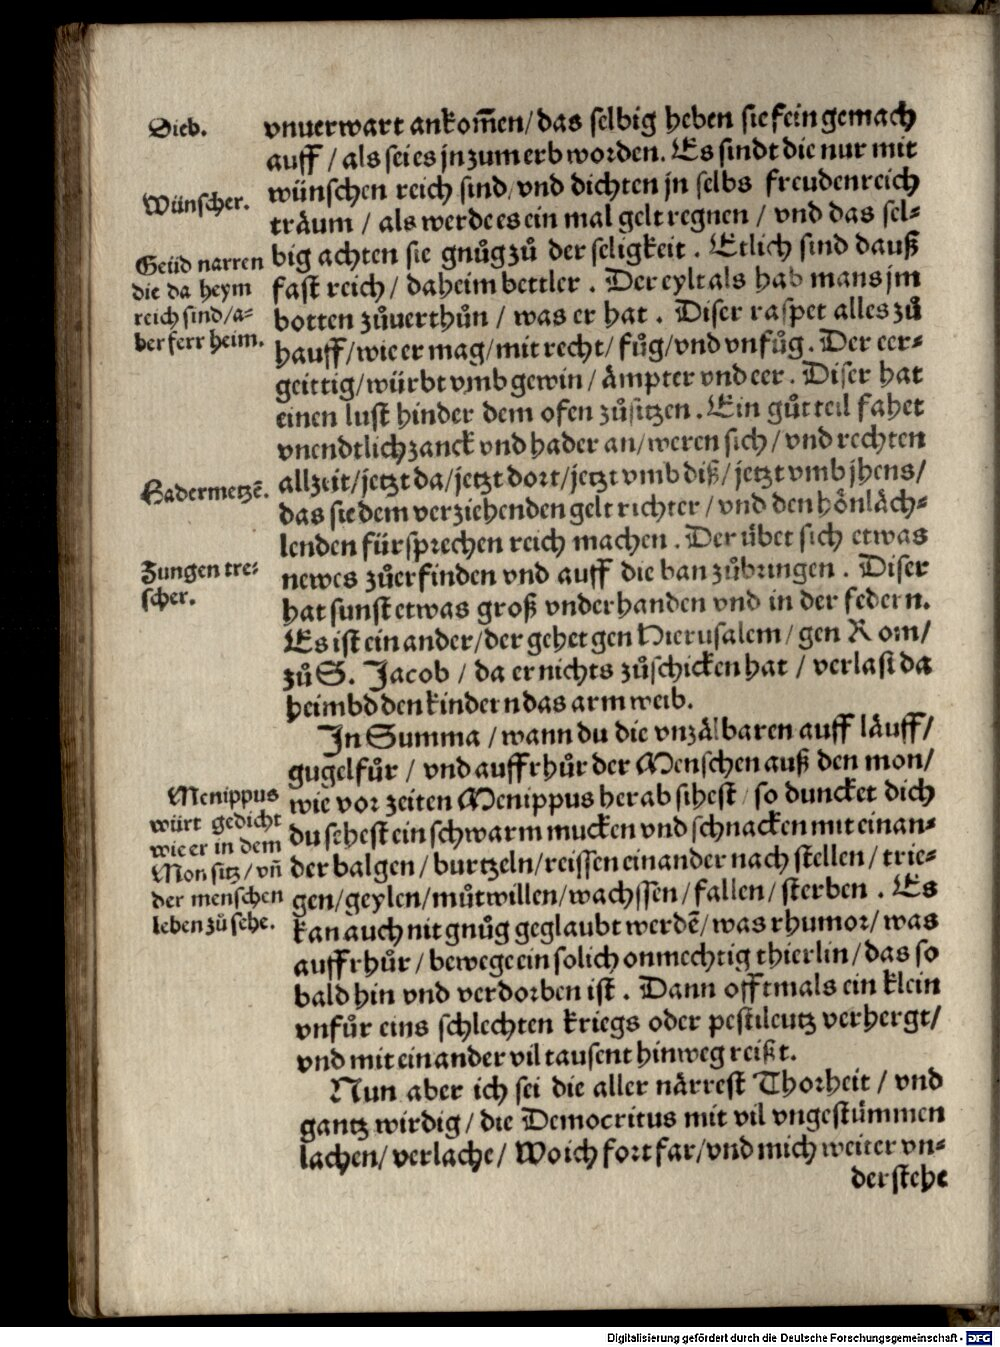 Dieb.
vnuerwart ankom̄en/das selbig heben sie fein gemach
auff / als sei es jn zum erb worden. Es sindt die nur mit
Wünscher.
wünschen reich sind/vnd dichten jn selbs freudenreich
träum / als werde es ein mal gelt regnen / vnd das sel-
Geüd narren
die da heym
reich sind/a-
ber ferr heim.
big achten sie gnůg zů der seligkeit. Etlich sind dauß
fast reich / daheim bettler. Der eylt als hab mans jm
botten zůuerthůn / was er hat. Diser raspet alles zů
hauff/wie er mag/mit recht/ fůg/vnd vnfůg. Der eer-
geittig/würbt vmb gewin / ämpter vnd eer. Diser hat
einen lust hinder dem ofen zůsitzen. Ein gůt teil fahet
vnendtlich zanck vnd hader an/weren sich/vnd rechten
Hadermetzē.
allzeit/jetzt da/jetzt dort/jetzt vmb diß/jetzt vmb jhens/
das sie dem verziehenden gelt richter/vnd den hönläch-
lenden fürsprechen reich machen. Der übet sich etwas
Zungen tre-
scher.
newes zůerfinden vnd auff die ban zůbringen. Diser
hat sunst etwas groß vnderhanden vnd in der federn.
Es ist ein ander/der gehet gen Hierusalem/gen Rom/
zů S. Jacob / da er nichts zůschicken hat / verlast da
heimbd den kindern das arm weib.
In Summa / wann du die vnzälbaren auff läuff/
gugelfůr / vnd auffrhůr der Menschen auß den mon/
Menippus
würt gedicht
wie er in dem
Mon sitz/vn̄
der menschen
leben zů sehe.
wie vor zeiten Menippus herab sihest / so duncket dich
du sehest ein schwarm mucken vnd schnacken mit einan-
der balgen/ burtzeln/reissen einander nach stellen/trie-
gen/geylen/můtwillen/wachssen/fallen/sterben. Es
kan auch nit gnůg geglaubt werdē/was rhumor/was
auffrhůr/bewege ein solich onmechtig thierlin/das so
bald hin vnd verdorben ist. Dann offtmals ein klein
vnfůr eins schlechten kriegs oder pestileutz verhergt/
vnd mit einander vil tausent hinweg reißt.
Nun aber ich sei die aller närrest Thorheit / vnd
gantz wirdig/die Democritus mit vil vngestümmen
lachen/verlache/Wo ich fort far/vnd mich weiter vn-
derstehe
Digitalisierung gefördert durch die Deutsche Forschungsgemeinschaft - DFG